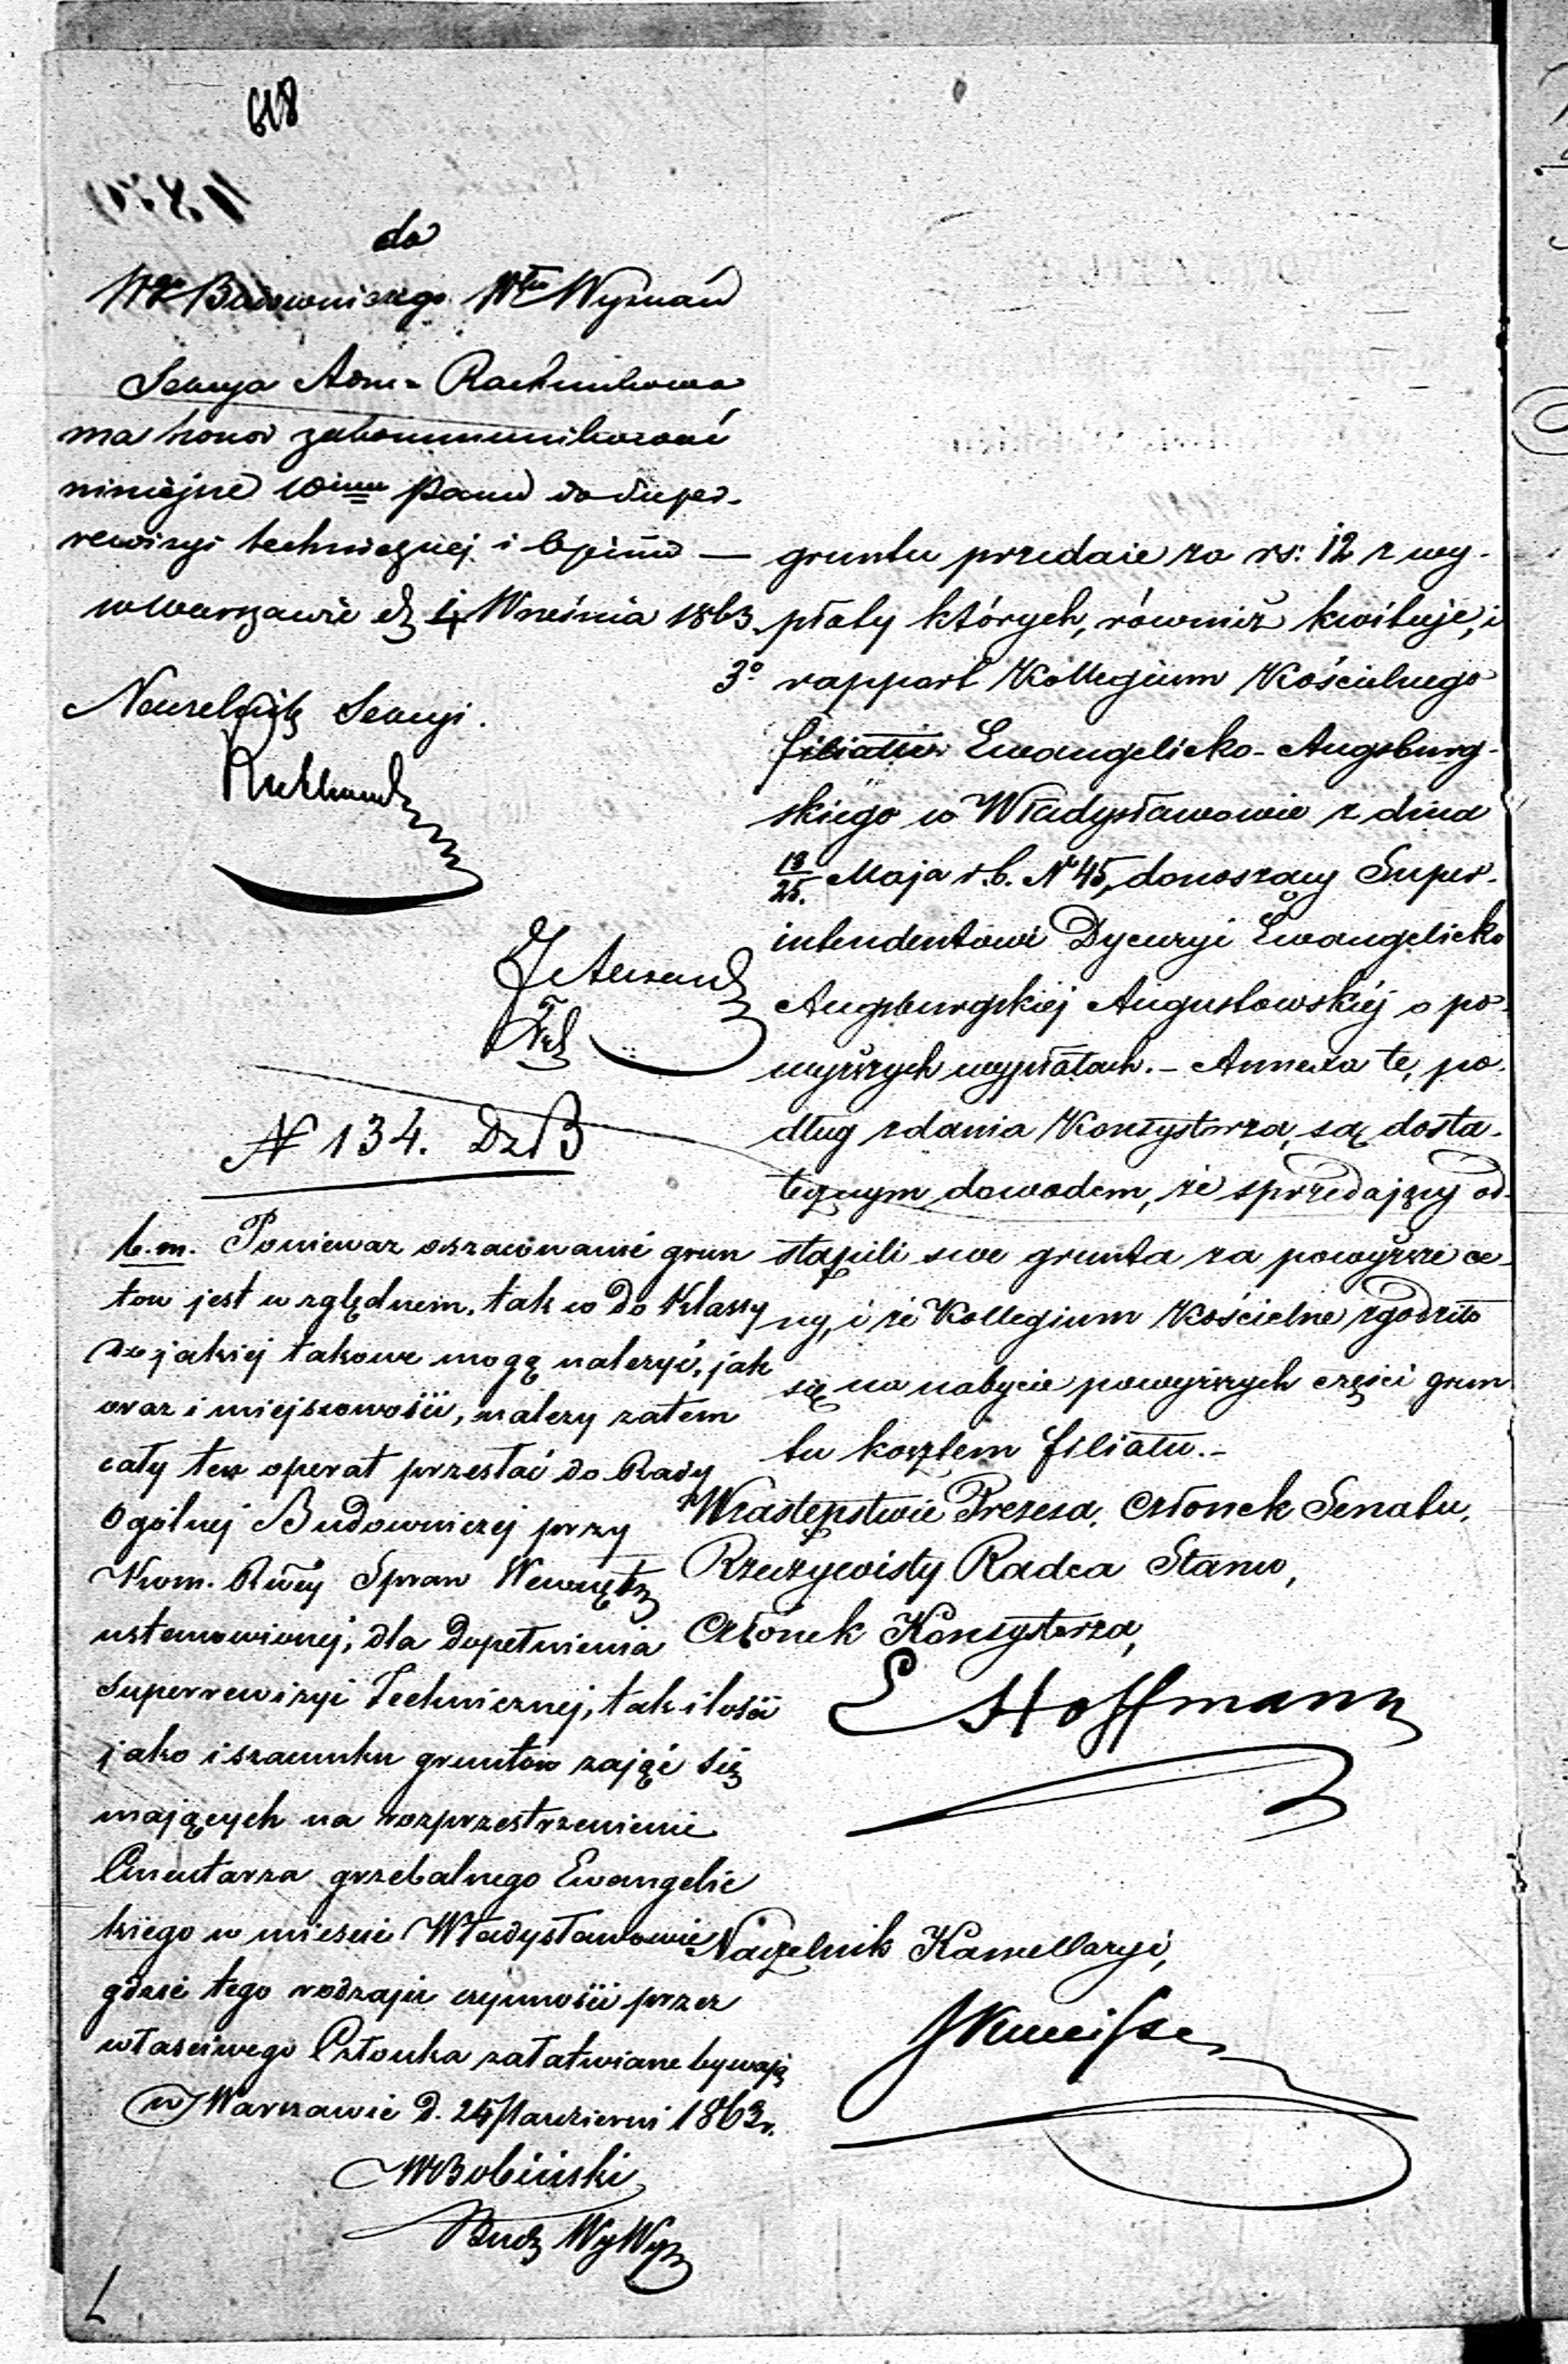 618
do
Wgo Budowniczego Włu Wyznań
Sekcya Adm: Rachunkowa
ma honor zakommunikować
niniejsze Wimu Panu do Super-
rewizyi technicznej i Opinii —
w Warszawie d. 4 Września 1863.
Naczelnik Sekcyi.
N 134. DzB
b.m. Poniewaz oszacowanie grun
tow jest względnem, tak co do Klassy
do jakiej takowe mogą należyć, jak
oraz i miejscowości, nalezy zatem
cały ten operat przesłać do Rady
Ogólnej Budowniczej przy
Kom. Rwéy Spraw Wewnętz
ustanowionej, dla dopełnienia
Superrewizyi Technicznej, tak ilości
jako i szacunku gruntów zająć się
mających na rozprzestrzenienie
Cmentarza grzebalnego Ewangelic
kiego w mieście Władysławowie
gdzie tego rodzaju czynności przez
właściwego Członka załatwiane bywają
w Warszawie d. 24 Październi 1863 r.
WBobiński
Budz WyWyz
gruntu przedaie za rs: 12 z wy-
płaty których, również kwituje, i
3º rapport Kollegium Kościelnego
filiału Ewangelicko-Augsburg-
skiego w Władysławowie z dnia
13/25. Maja r.b. Nº 45, donoszący Super-
intendentowi Dyecezyi Ewangelicko
Augsburgskiéj Augustowskiéj o po-
wyższych wypłatach. – Annexa te, po-
dług zdania Konsystorza, są dosta-
tecznym dowodem, że sprzedający od-
stąpili swe grunta za powyższe ce-
ny, i że Kollegium Kościelne zgodziło
się na nabycie powyższych części grun
tu kosztem filiału.–
W zastępstwie Prezesa, Członek Senatu,
Rzeczywisty Radca Stanu,
Członek Konsystorza,
E Hoffmann
Naczelnik Kancellaryi,